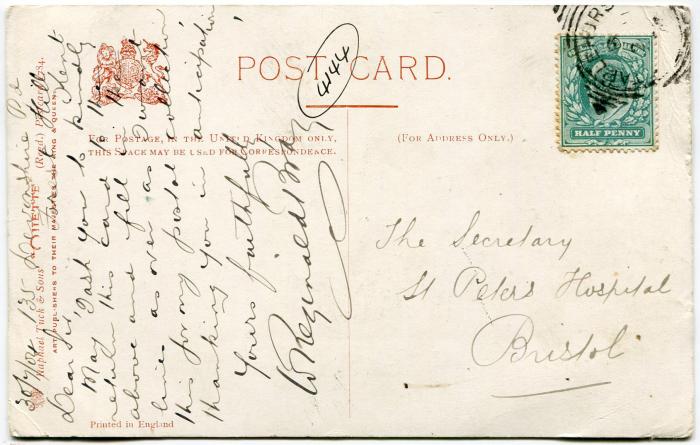 POST CARD.
4144
FOR POSTAGE, IN THE UNITED KINGDOM ONLY,
THIS SPACE MAY BE USED FOR CORRESPONDENCE.
(FOR ADDRESS ONLY.)
HALF PENNY
The Secretary
St Peters Hospital
Bristol
135 Devonshire Rd
Hill
Kent
Dear Sir
May I ask you to kindly
return this card to me
above and fill
lines as over as
this for my postal collection
thanking you in anticipation
Yours faithfully
W Reginald Bray
Raphael Tuck & Sons' (Regd.) Postcard
ART PUBLISHERS TO THEIR MAJESTIES THE KING & QUEEN.
Printed in England